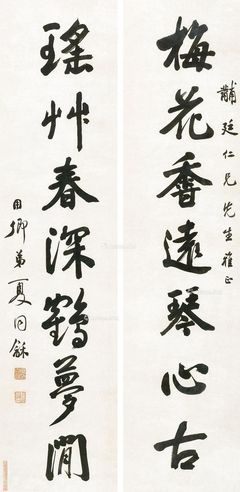 黼廷仁兄先生雅正
梅花香遠琴心古
瑤草春深鶴夢閒
用卿弟夏同龢